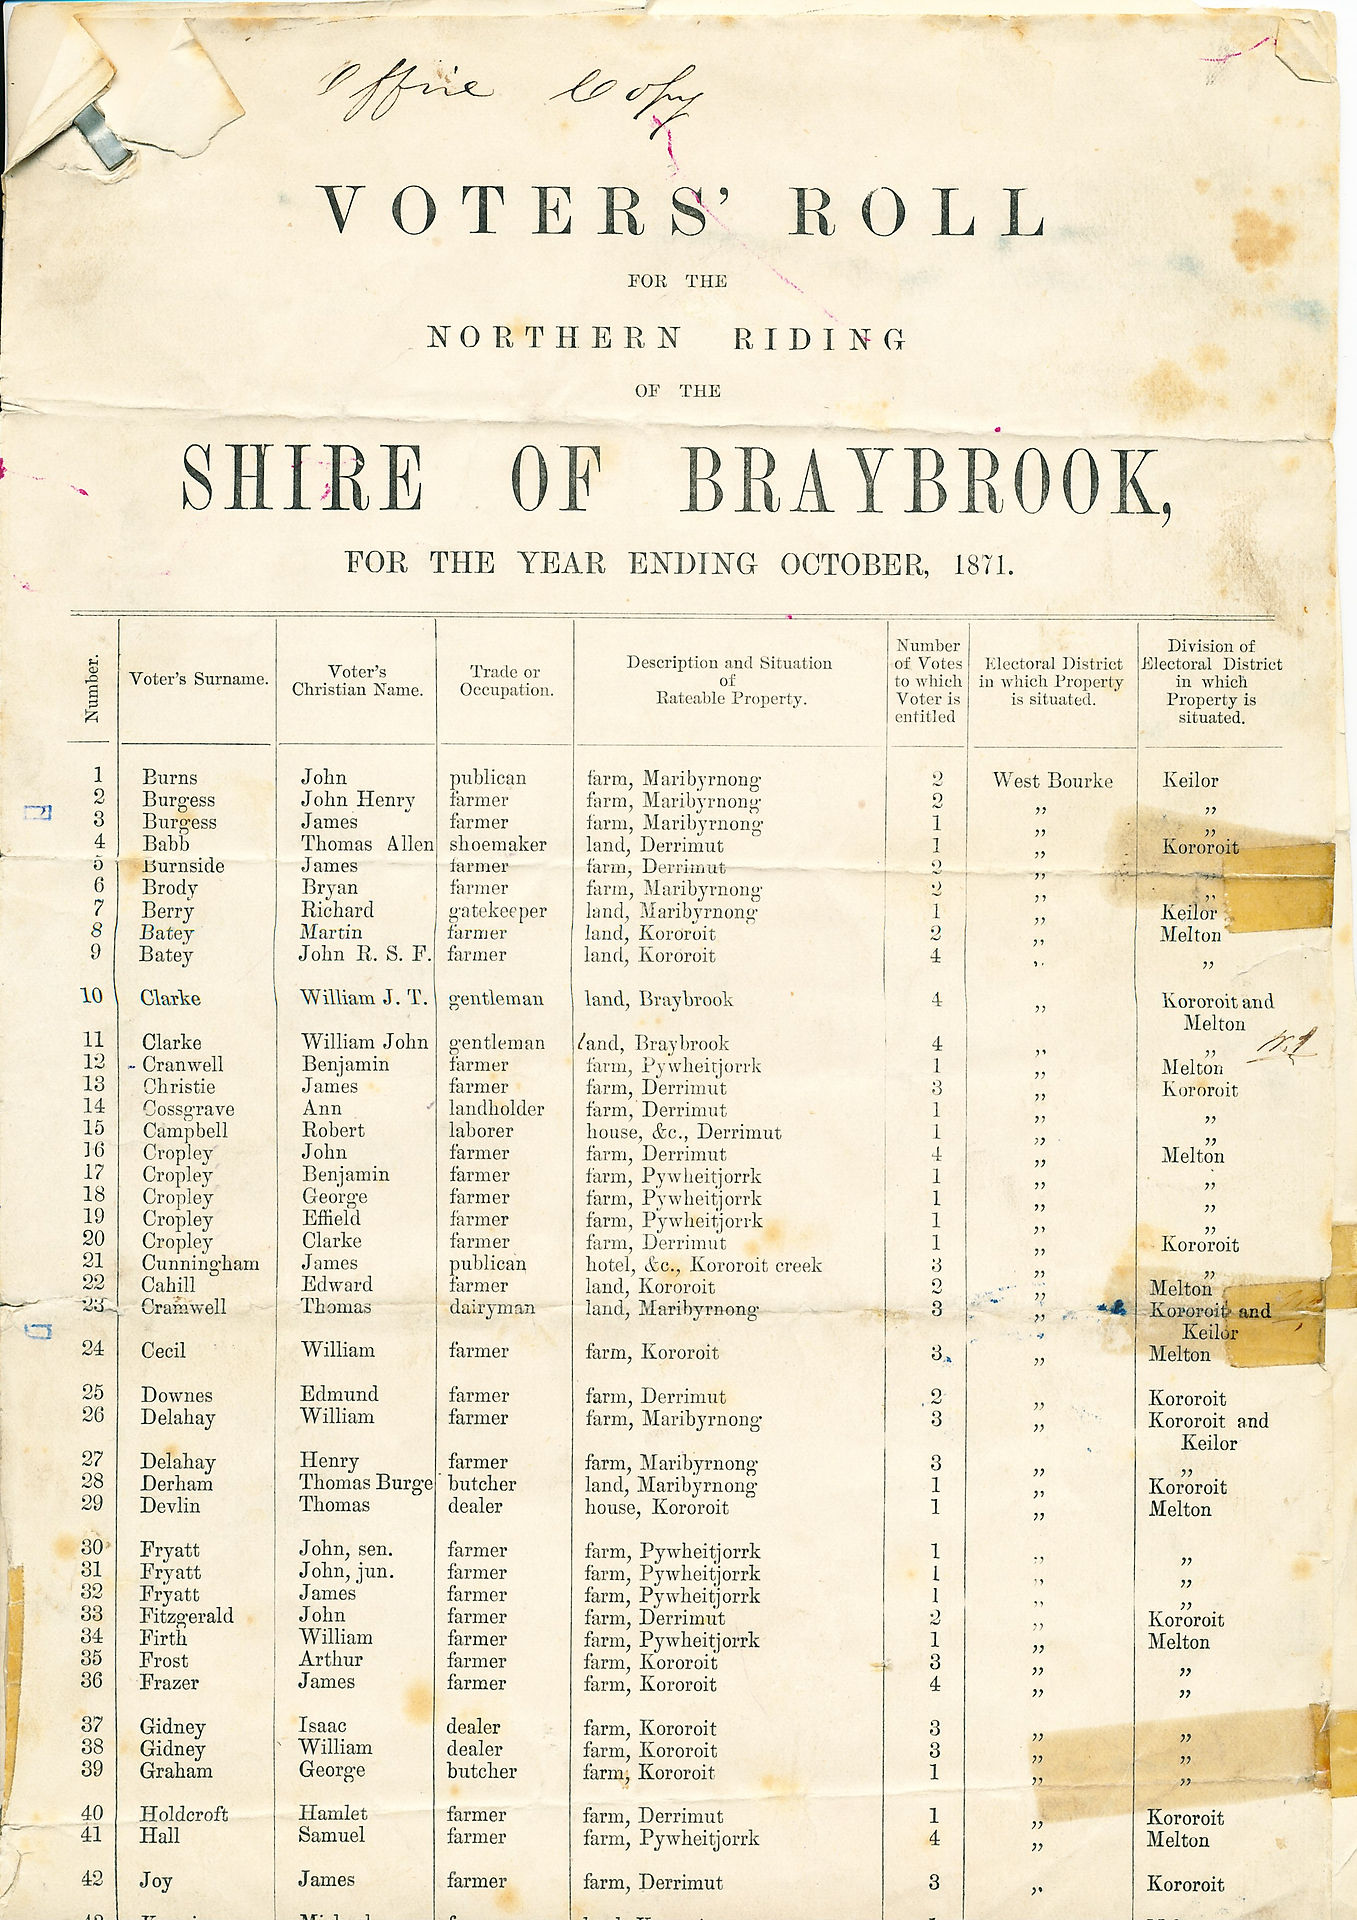 Office Copy
VOTERS' ROLL
FOR THE
NORTHERN RIDING
OF THE
SHIRE OF BRAYBROOK,
FOR THE YEAR ENDING OCTOBER, 1871.
Number. | Voter's Surname. | Voter's Christian Name. | Trade or Occupation. | Description and Situation of Rateable Property. | Number of Votes to which Voter is entitled | Electoral District in which Property is situated. | Division of Electoral District in which Property is situated.
1 Burns John publican farm, Maribyrnong 2 West Bourke Keilor
2 Burgess John Henry farmer farm, Maribyrnong 2 ,, ,,
3 Burgess James farmer farm, Maribyrnong 1 ,, ,,
4 Babb Thomas Allen shoemaker land, Derrimut 1 ,, Kororoit
5 Burnside James farmer farm, Derrimut 2 ,, ,,
6 Brody Bryan farmer farm, Maribyrnong 2 ,, ,,
7 Berry Richard gatekeeper land, Maribyrnong 1 ,, Keilor
8 Batey Martin farmer land, Kororoit 2 ,, Melton
9 Batey John R. S. F. farmer land, Kororoit 4 ,, ,,
10 Clarke William J. T. gentleman land, Braybrook 4 ,, Kororoit and
Melton
11 Clarke William John gentleman land, Braybrook 4 ,, ,,
12 Cranwell Benjamin farmer farm, Pywheitjorrk 1 ,, Melton
13 Christie James farmer farm, Derrimut 3 ,, Kororoit
14 Cossgrave Ann landholder farm, Derrimut 1 ,, ,,
15 Campbell Robert laborer house, &c., Derrimut 1 ,, ,,
16 Cropley John farmer farm, Derrimut 4 ,, Melton
17 Cropley Benjamin farmer farm, Pywheitjorrk 1 ,, ,,
18 Cropley George farmer farm, Pywheitjorrk 1 ,, ,,
19 Cropley Effield farmer farm, Pywheitjorrk 1 ,, ,,
20 Cropley Clarke farmer farm, Derrimut 1 ,, Kororoit
21 Cunningham James publican hotel, &c., Kororoit creek 3 ,, ,,
22 Cahill Edward farmer land, Kororoit 2 ,, Melton
23 Cramwell Thomas dairyman land, Maribyrnong 3 ,, Kororoit and
Keilor
24 Cecil William farmer farm, Kororoit 3 ,, Melton
25 Downes Edmund farmer farm, Derrimut 2 ,, Kororoit
26 Delahay William farmer farm, Maribyrnong 3 ,, Kororoit and
Keilor
27 Delahay Henry farmer farm, Maribyrnong 3 ,, ,,
28 Derham Thomas Burge butcher land, Maribyrnong 1 ,, Kororoit
29 Devlin Thomas dealer house, Kororoit 1 ,, Melton
30 Fryatt John, sen. farmer farm, Pywheitjorrk 1 ,, ,,
31 Fryatt John, jun. farmer farm, Pywheitjorrk 1 ,, ,,
32 Fryatt James farmer farm, Pywheitjorrk 1 ,, ,,
33 Fitzgerald John farmer farm, Derrimut 2 ,, Kororoit
34 Firth William farmer farm, Pywheitjorrk 1 ,, Melton
35 Frost Arthur farmer farm, Kororoit 3 ,, ,,
36 Frazer James farmer farm, Kororoit 4 ,, ,,
37 Gidney Isaac dealer farm, Kororoit 3 ,, ,,
38 Gidney William dealer farm, Kororoit 3 ,, ,,
39 Graham George butcher farm, Kororoit 1 ,, ,,
40 Holdcroft Hamlet farmer farm, Derrimut 1 ,, Kororoit
41 Hall Samuel farmer farm, Pywheitjorrk 4 ,, Melton
42 Joy James farmer farm, Derrimut 3 ,, Kororoit